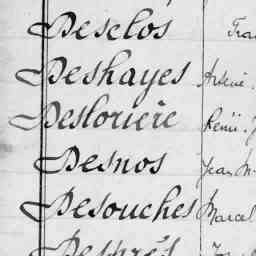 Desclos Fra
Deshayes Arsène
Deslorière Rémi J
Desnos Jean M
Desouches Marcel
Després